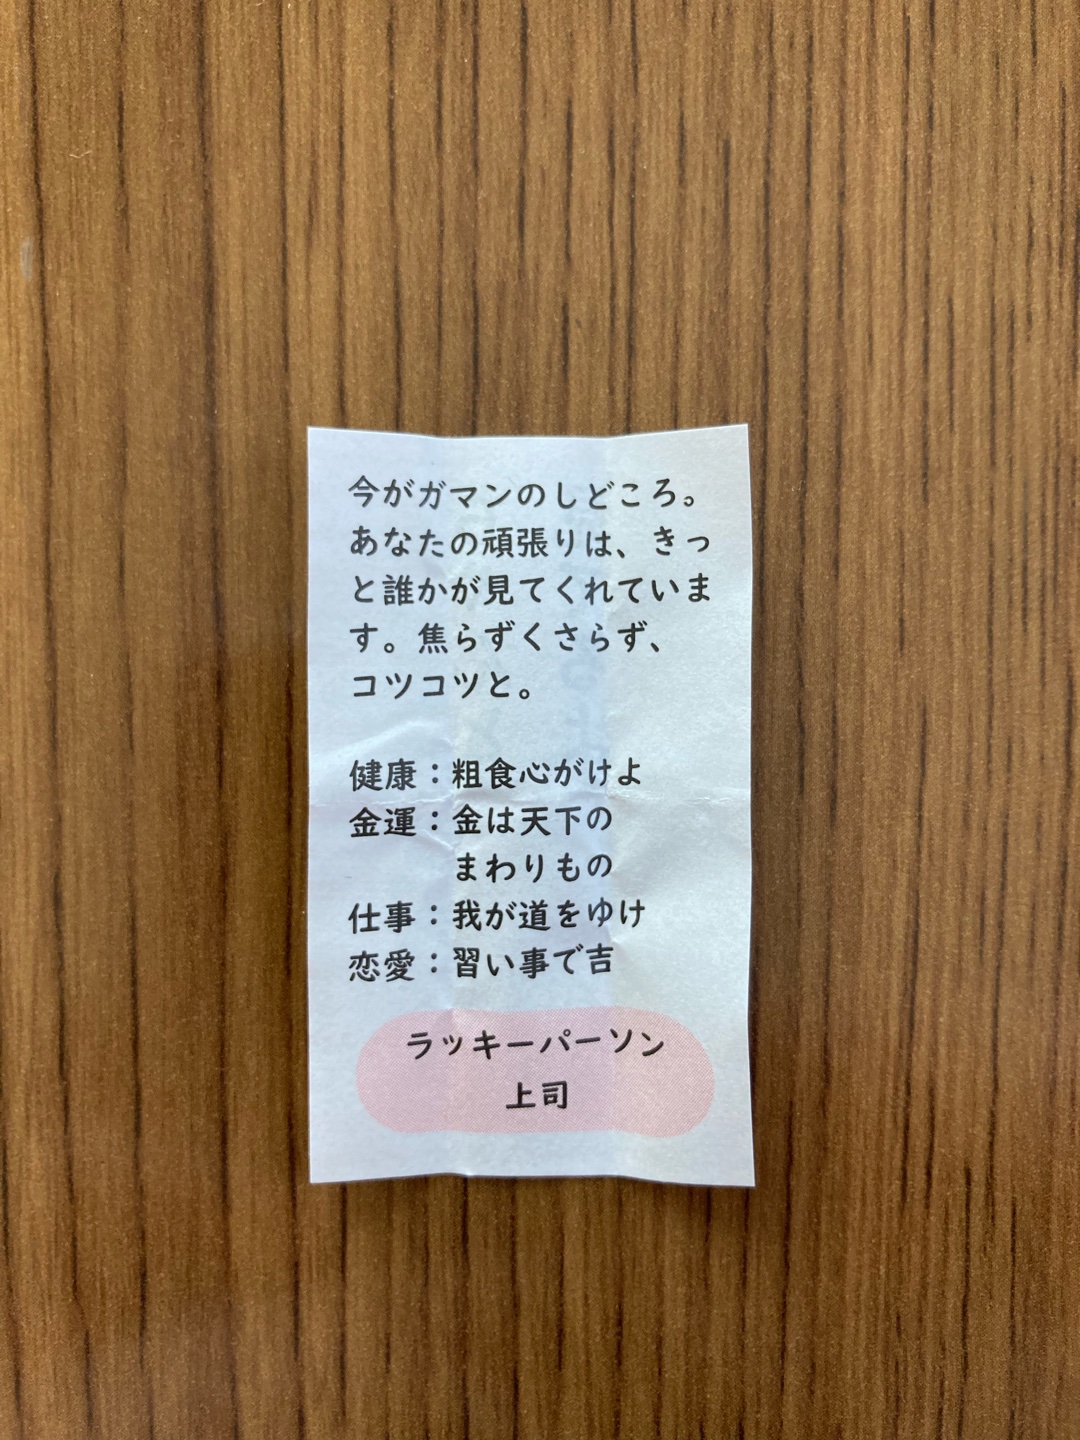 今がガマンのしどころ。
あなたの頑張りは、きっ
と誰かが見てくれていま
す。焦らずくさらず、
コツコツと。
健康：粗食心がけよ
金運：金は天下の
まわりもの
仕事：我が道をゆけ
恋愛：習い事で吉
ラッキーパーソン
上司